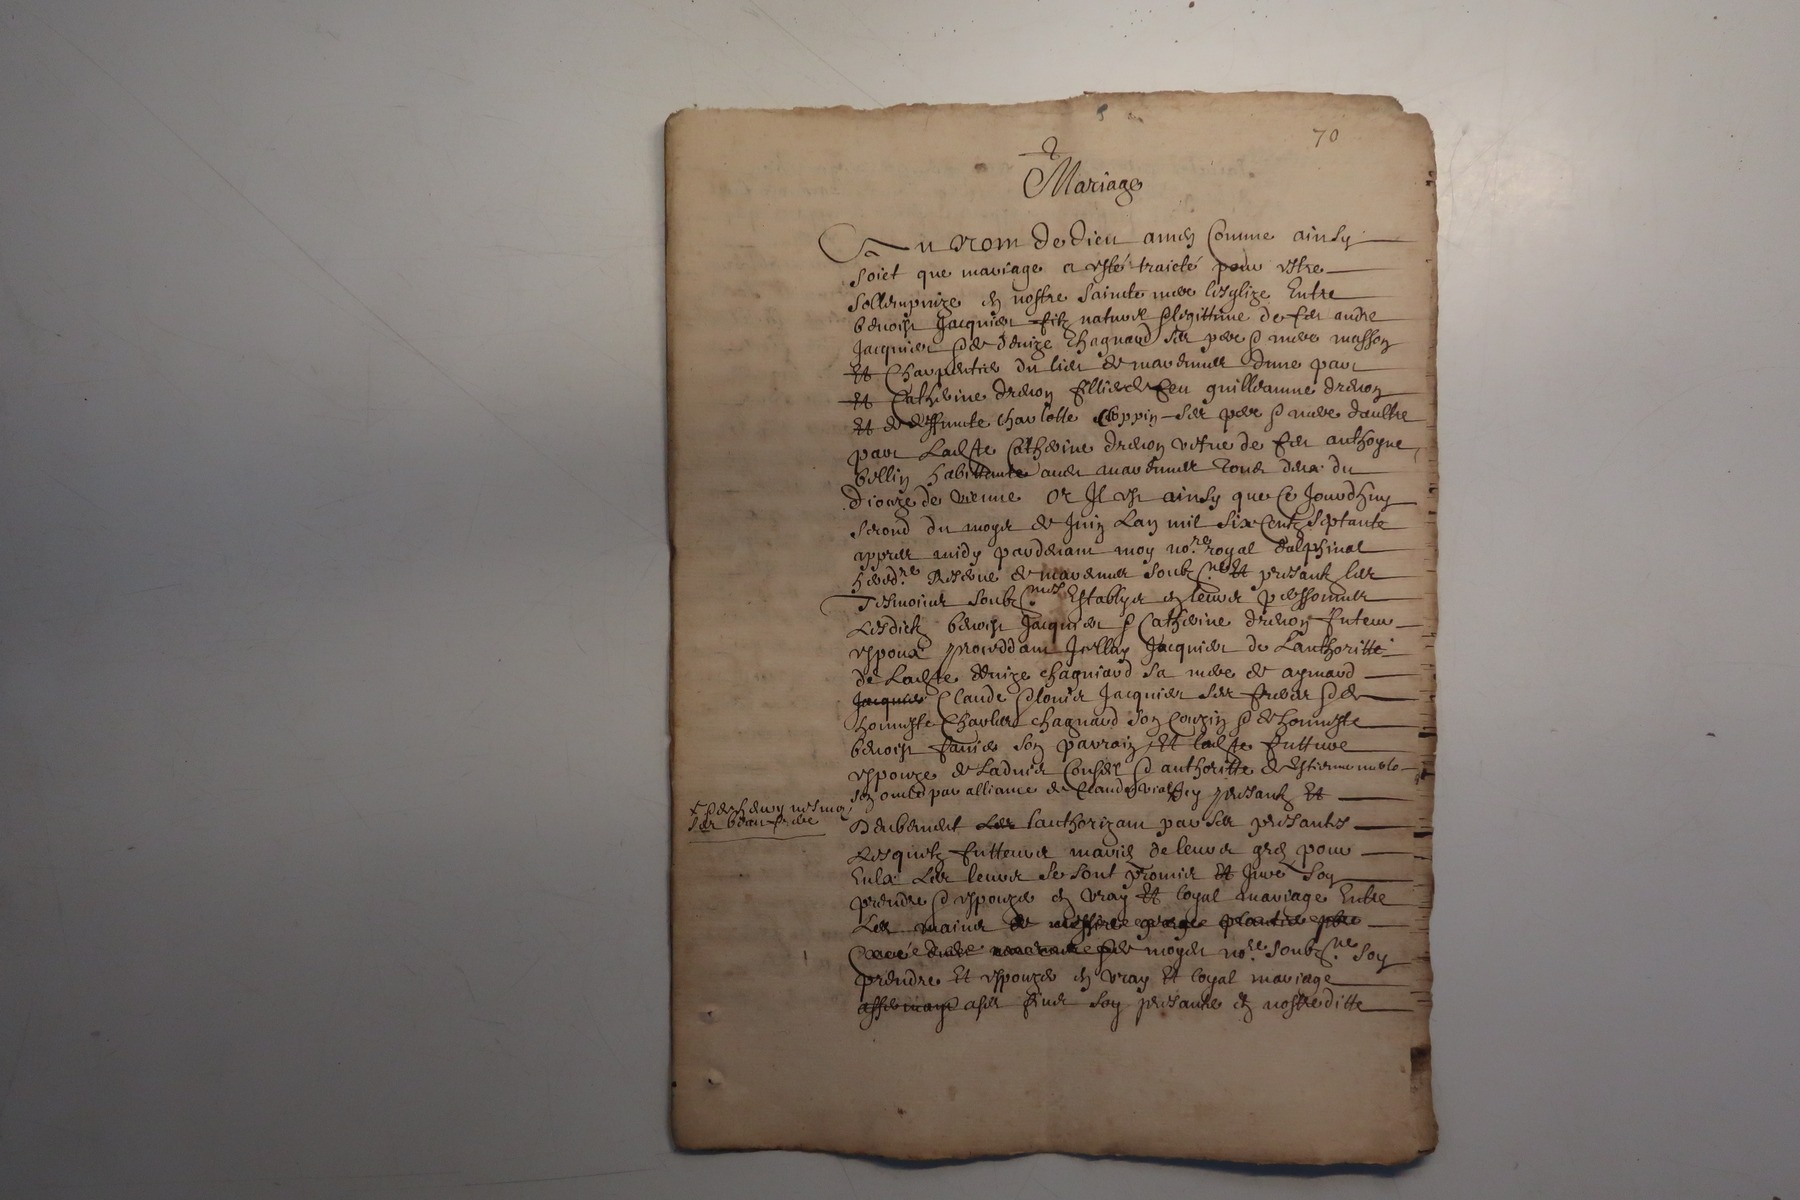 70
Mariage
Au nom de dieu amen Comme ainsy
soict que mariage a esté traicté pour estre
sollempnize en nostre saincte mere lesglize Entre
benoist Jacquier filz naturel & legittime de feu andre
Jacquier & de denize Chagnard ses pere & mere masson
et Charpentier du lieu de dune part
et Catherine drevon fillie de feu guilleaume drevon
et de deffuncte charlotte ses pere & mere daultre
part Ladte Catherine drevon vefve de feu anthoyne
bellin habittante audt tous deux du
dioceze de vienne or Il est ainsy que Ce Jourdhuy
second du moys de Juin Lan mil six Centz septante
appres midy pardevant moy nore royal dalphinal
heredre de soubzne et presantz les
Tesmoins soubznes Establys en leurs personnes
Lesdictz benoist Jacquier & Catherine drevon futeur
espoux proceddant Icelluy Jacquier de Lauthoritté
de Ladte denize chagniard sa mere de aymard
Jacquier Claude & Jacquier ses freres & de
honneste Charles chagnard son Cousin & de honneste
benoist son parrain et ladte futture
espouze de Ladvis Conseil & authoritte de Estienne
son oncle par alliance de Claude presantz et
& de henry
son beau frere
deubement les lauthorizant par ses presantes
Lesquelz futteurs mariés de leurs gres pour
Eulx Les leurs se sont promis et Juré soy
prendre & espouzer en vray et loyal mariage Entre
Les mains de messire
Curé dudit de moydt nore soubzne soy
prendre et espouzer en vray et loyal mariage
soy presanter en nostreditte